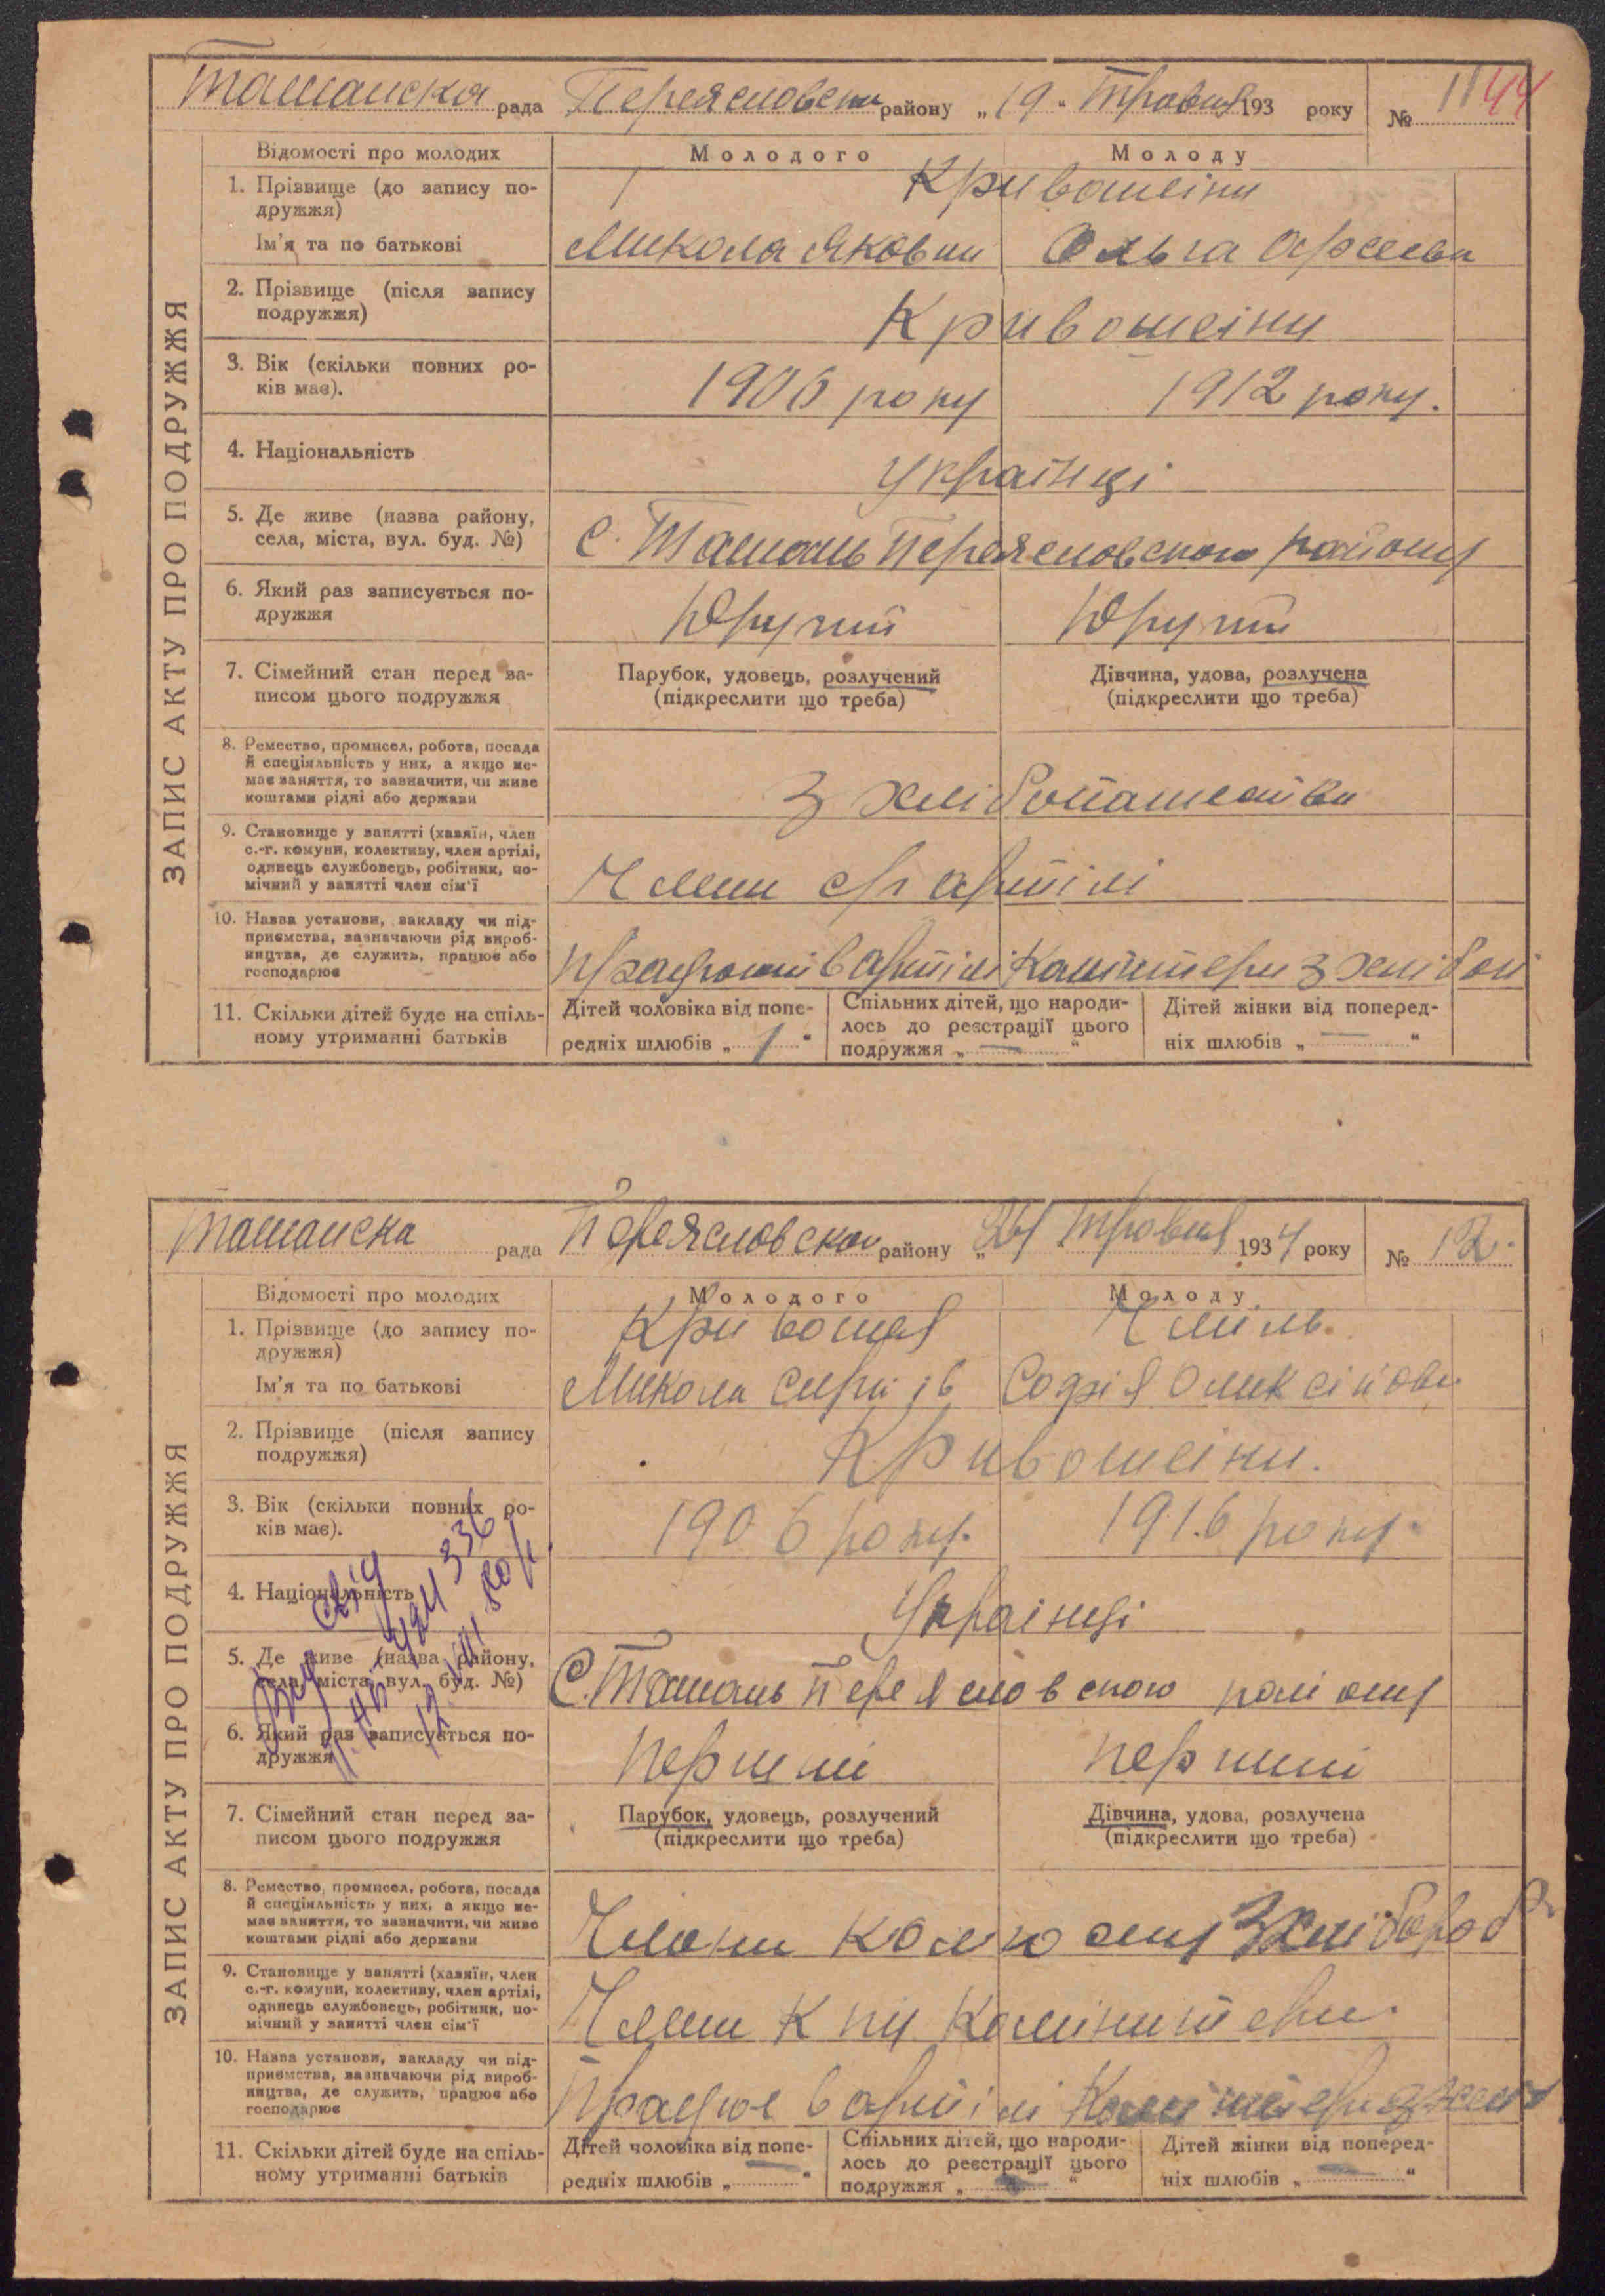 Ташанска рада Переясловськ району „19“ Травня 193 року № 11 44
ЗАПИС АКТУ ПРО ПОДРУЖЖЯ
Відомості про молодих
Молодого
Молоду
1. Прізвище (до запису по-
дружжя)
Кривошеіни
Ім'я та по батькові
Микола Якович
Ольга
2. Прізвище (після запису
подружжя)
Кривошеіни
3. Вік (скільки повних ро-
ків має).
1906 року
1912 року.
4. Національність
Українці
5. Де живе (назва району,
села, міста, вул. буд. №)
С. Ташань Переясловського району
6. Який раз записується по-
дружжя
Другий
Другий
7. Сімейний стан перед за-
писом цього подружжя
Парубок, удовець, розлучений
(підкреслити що треба)
Дівчина, удова, розлучена
(підкреслити що треба)
8. Ремество, промисел, робота, посада
й спеціяльність у них, а якщо не-
має заняття, то зазначити, чи живе
коштами рідні або держави
З хліборашества
9. Становище у занятті (хазяїн, член
с.-г. комуни, колективу, член артілі,
одинець службовець, робітник, по-
мічний у занятті член сім'ї
Члени артілі
10. Назва установи, закладу чи під-
приємства, зазначаючи рід вироб-
ництва, де служить, працює або
господарює
в артілі з
11. Скільки дітей буде на спіль-
ному утриманні батьків
Дітей чоловіка від попе-
редніх шлюбів „ 1 “
Спільних дітей, що народи-
лось до реєстрації цього
подружжя „ — “
Дітей жінки від поперед-
ніх шлюбів „ — “
Ташанска рада Переясловског району „21“ Травня 1934 року № 12.
ЗАПИС АКТУ ПРО ПОДРУЖЖЯ
Відомості про молодих
Молодого
Молоду
1. Прізвище (до запису по-
дружжя)
Кривошея
Чміль.
Ім'я та по батькові
Микола
Софія Олексіїовн
2. Прізвище (після запису
подружжя)
Кривошеіни.
3. Вік (скільки повних ро-
ків має).
1906 року.
1916 року.
4. Національність
Українці
5. Де живе (назва району,
села, міста, вул. буд. №)
С. Ташань Переясловского району
6. Який раз записується по-
дружжя
перший
перший
7. Сімейний стан перед за-
писом цього подружжя
Парубок, удовець, розлучений
(підкреслити що треба)
Дівчина, удова, розлучена
(підкреслити що треба)
8. Ремество, промисел, робота, посада
й спеціяльність у них, а якщо не-
має заняття, то зазначити, чи живе
коштами рідні або держави
Члени
9. Становище у занятті (хазяїн, член
с.-г. комуни, колективу, член артілі,
одинець службовець, робітник, по-
мічний у занятті член сім'ї
Члени
10. Назва установи, закладу чи під-
приємства, зазначаючи рід вироб-
ництва, де служить, працює або
господарює
Працює в артілі
11. Скільки дітей буде на спіль-
ному утриманні батьків
Дітей чоловіка від попе-
редніх шлюбів „ — “
Спільних дітей, що народи-
лось до реєстрації цього
подружжя „ — “
Дітей жінки від поперед-
ніх шлюбів „ — “